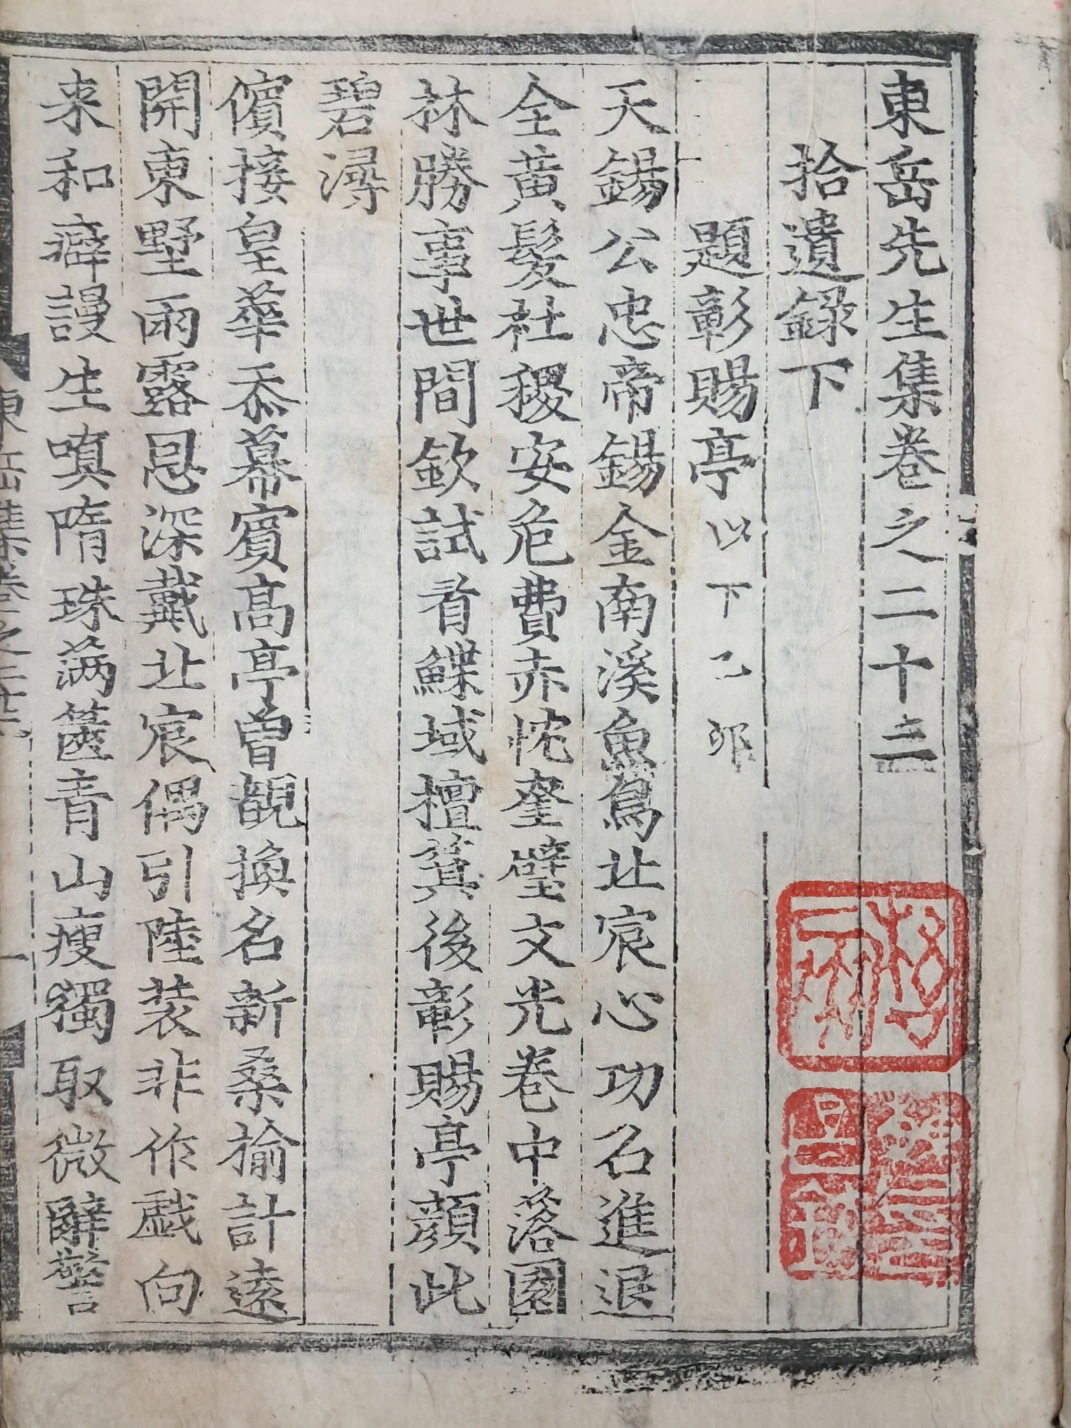 東岳先生集卷之二十三
拾遺録下
題彰賜亭以下乙邜
天錫公忠帝錫金南溪魚鳥北宸心功名進退
全黃髮社稷安危費赤忱奎璧文光卷中落園
林勝事世間欽試看鰈域檀箕後彰賜亭顏此
碧潯
儐接皇華忝幕賓高亭曾覩換名新桑榆計遠
開東墅雨露恩深戴北宸偶引陸装非作戱向
来和癖謾生嗔隋珠滿篋青山瘦獨取微辭警
東岳集卷之二十三
一